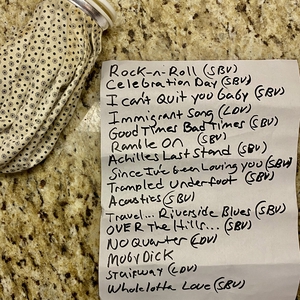 Rock-n-Roll (SBV)
Celebration Day (SBV)
I can't Quit you baby (SBV)
Immigrant Song (LDV)
Good Times Bad Times (SBV)
Ramble On (SBV)
Achilles Last Stand (SBV)
Since I've been Loving you (SBV)
Trampled Underfoot (SBV)
Acoustics (SBV)
Travel... Riverside Blues (SBV)
OVER The Hills... (SBV)
NO Quarter (LDV)
Moby Dick
Stairway (LDV)
Wholelotta Love (SBV)